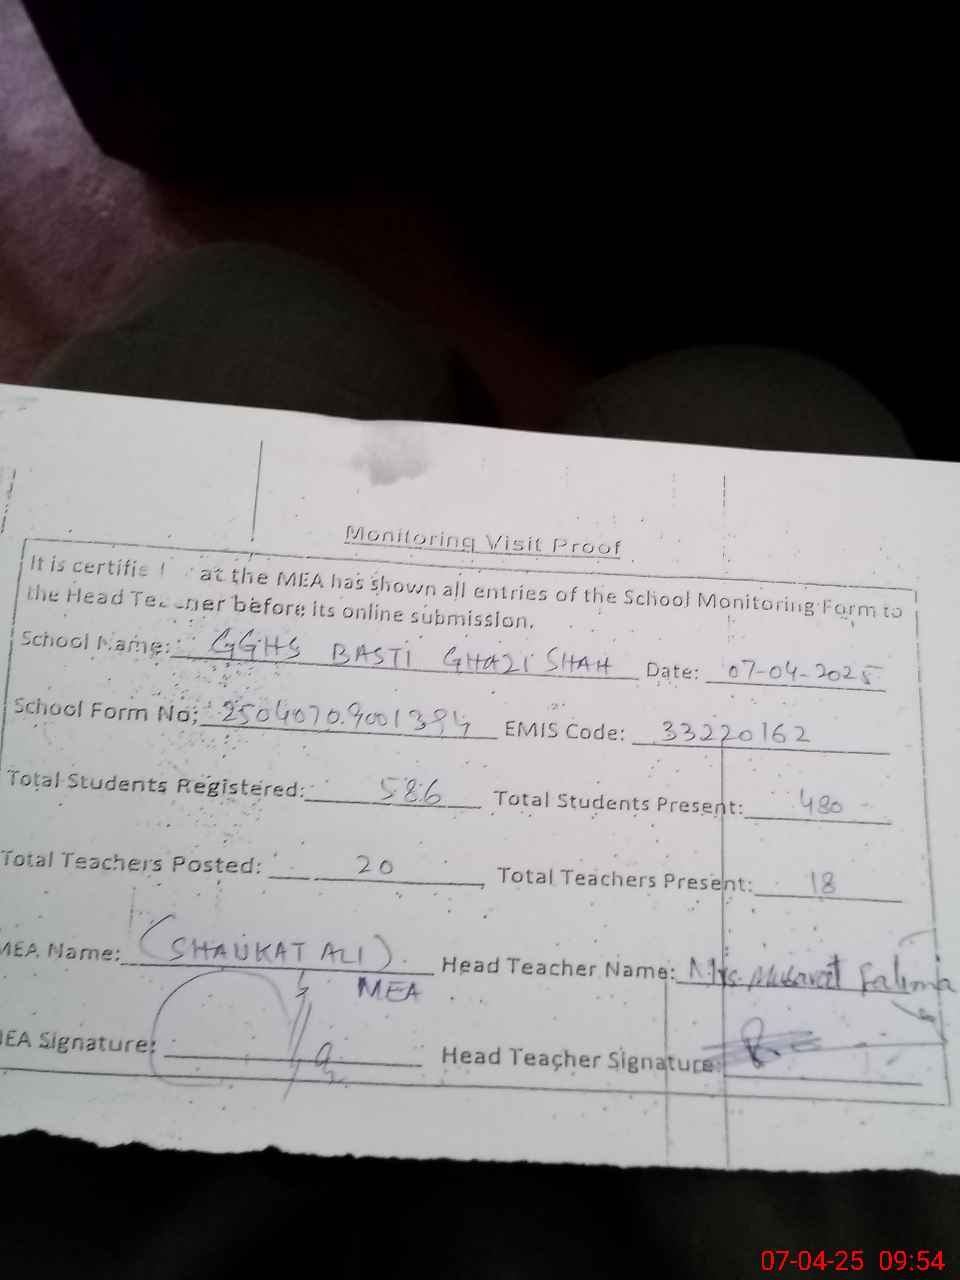 Monitoring Visit Proof
It is certifie at the MEA has shown all entries of the School Monitoring Form to
the Head Teacher before its online submission.
School Name: GGHS BASTI GHAZI SHAH Date: 07-04-2025
School Form No: 2504070.9001394 EMIS Code: 33220162
Total Students Registered: 586 Total Students Present: 480
Total Teachers Posted: 20 Total Teachers Present: 18
MEA Name: (SHAUKAT ALI) Head Teacher Name: Mrs. Musarat Fatima
MEA
EA Signature: Head Teacher Signature:
07-04-25 09:54